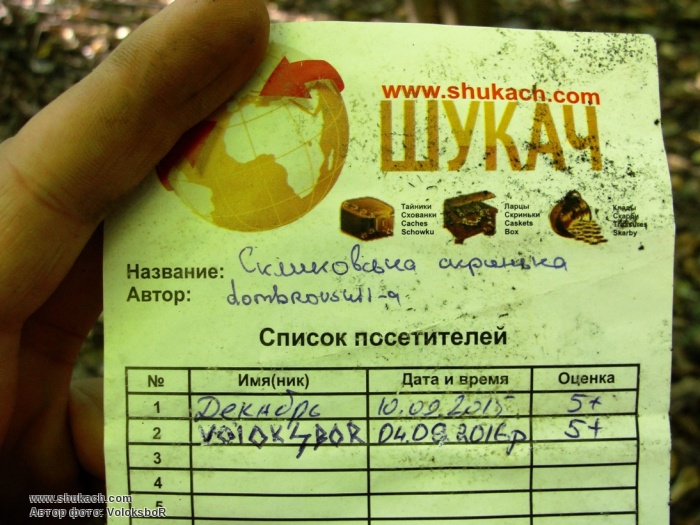 www.shukach.com
ШУКАЧ
Тайники
Схованки
Caches
Schowku
Ларцы
Скриньки
Caskets
Box
Клады
Скарби
Treasures
Skarby
Название: скринька
Автор:
Список посетителей
№ Имя(ник) Дата и время Оценка
1 Декабрь 10.09.2015 5+
2 VOlOKSBOR 04.09.2016р 5+
3
4
5
www.shukach.com
Автор фото: VoloksboR